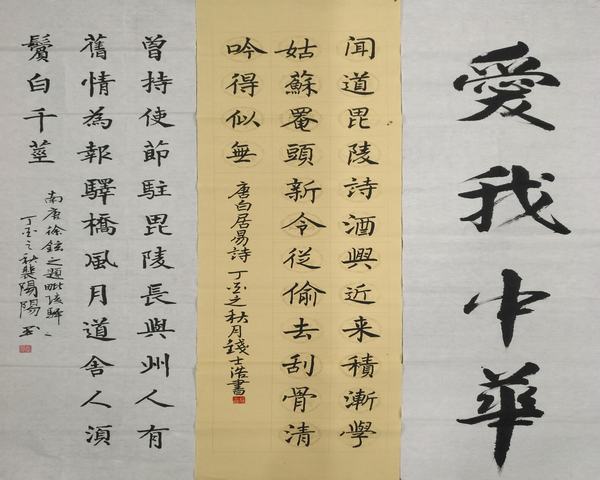 愛我中華
闻道毘陵詩酒興近来積漸學
姑蘇罨頭新令從偷去刮骨清
吟得似無
唐白居易詩 丁酉之秋月錢士浩書
曾持使節駐毘陵長與州人有
舊情為報驛橋風月道舍人湏
鬢白千莖
南唐徐鉉之題毗陵驛
丁酉之秋裴陽陽书